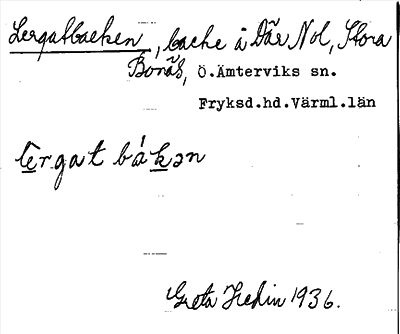 Lergatbacken, backe å Där Nol, Stora
Bonäs, Ö.Ämterviks sn.
Fryksd.hd.Värml.län
lergat båkən
Greta Hedin 1936.